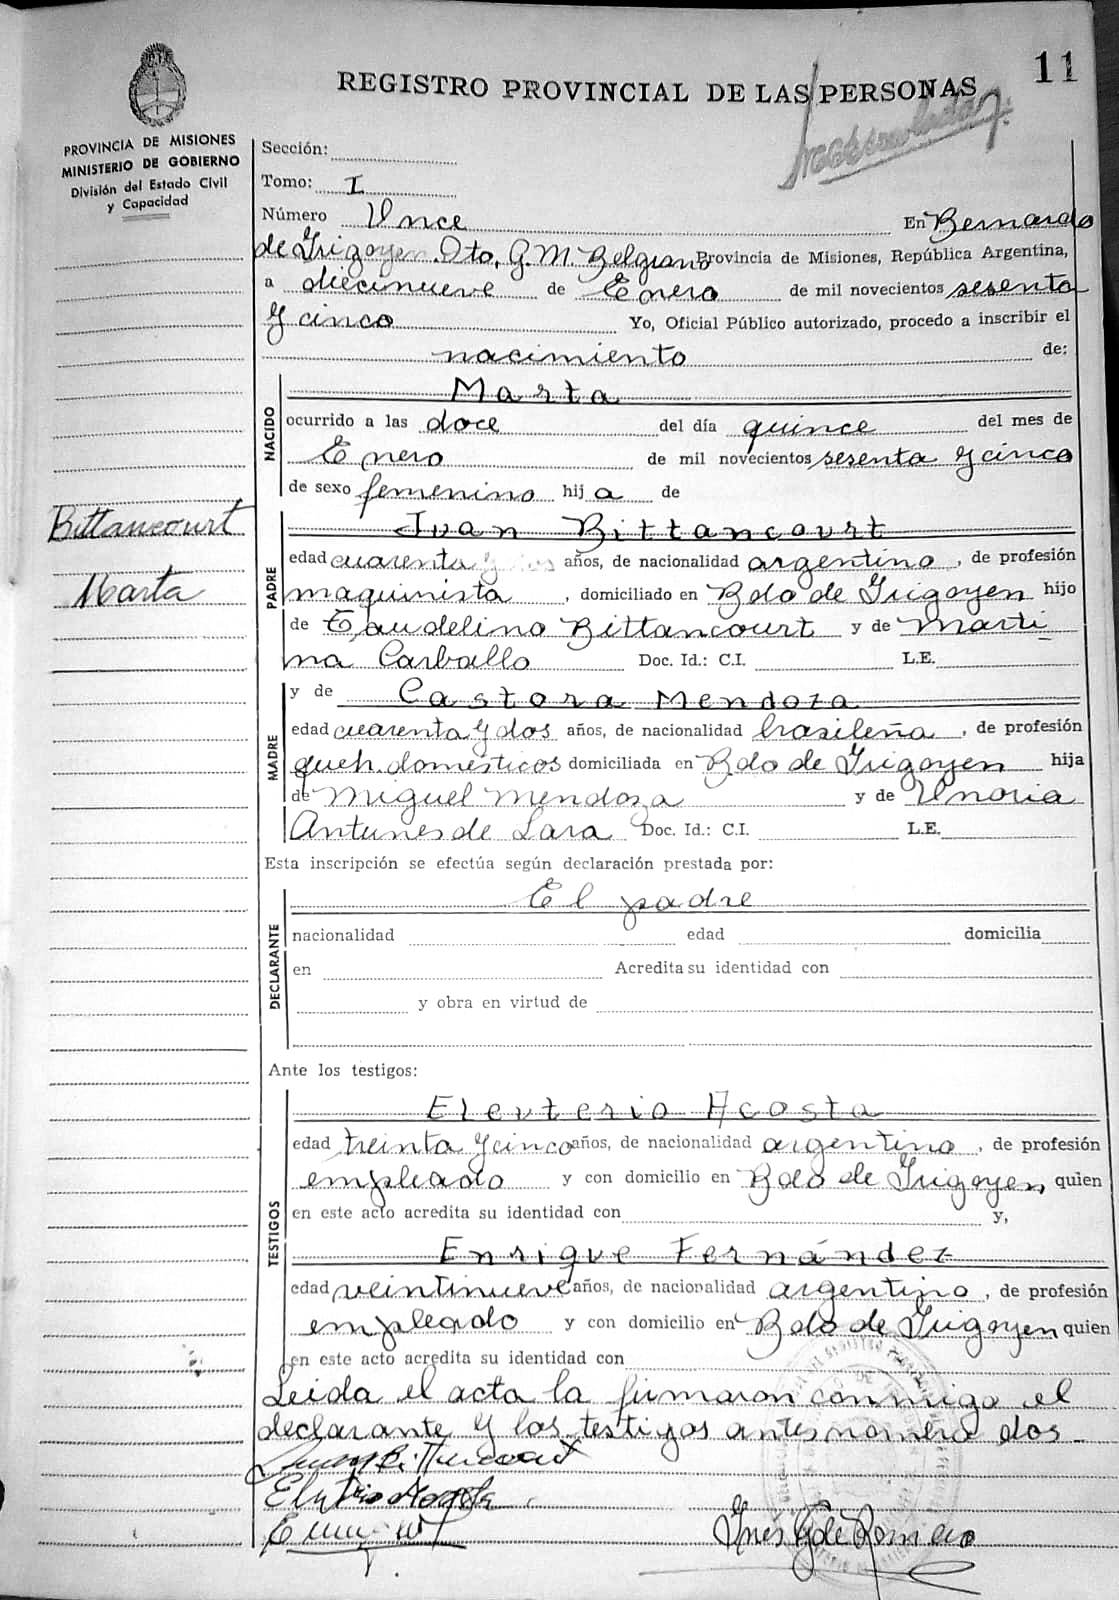 11
REGISTRO PROVINCIAL DE LAS PERSONAS
PROVINCIA DE MISIONES
MINISTERIO DE GOBIERNO
División del Estado Civil
y Capacidad
Sección:
Tomo: I
Número Once En Bernardo
de Irigoyen. Dto. G. M. Belgrano Provincia de Misiones, República Argentina,
a diecinueve de Enero de mil novecientos sesenta
y cinco Yo, Oficial Público autorizado, procedo a inscribir el
nacimiento de:
NACIDO
Marta
ocurrido a las doce del día quince del mes de
Enero de mil novecientos sesenta y cinco
de sexo femenino hija de
Bittancourt
Marta
PADRE
Juan Bittancourt
edad cuarenta y años, de nacionalidad argentino, de profesión
maquinista, domiciliado en Bdo de Irigoyen hijo
de Bittancourt y de Marti
na Carballo Doc. Id.: C.I. L.E.
MADRE
y de Castora Mendoza
edad cuarenta y dos años, de nacionalidad brasileña, de profesión
queh. domésticos domiciliada en Bdo de Irigoyen hija
de Miguel Mendoza y de Onoria
Antunes de Lara Doc. Id.: C.I. L.E.
Esta inscripción se efectúa según declaración prestada por:
DECLARANTE
El padre
nacionalidad edad domicilia
en Acredita su identidad con
y obra en virtud de
Ante los testigos:
TESTIGOS
Eleuterio Acosta
edad treinta y cinco años, de nacionalidad argentino, de profesión
empleado y con domicilio en Bdo de Irigoyen, quien
en este acto acredita su identidad con y,
Enrique Fernández
edad veintinueve años, de nacionalidad argentino, de profesión
empleado y con domicilio en Bdo de Irigoyen quien
en este acto acredita su identidad con
Leida el acta la firmaron conmigo el
declarante y los testigos antes nomera dos
Inés G de Romero